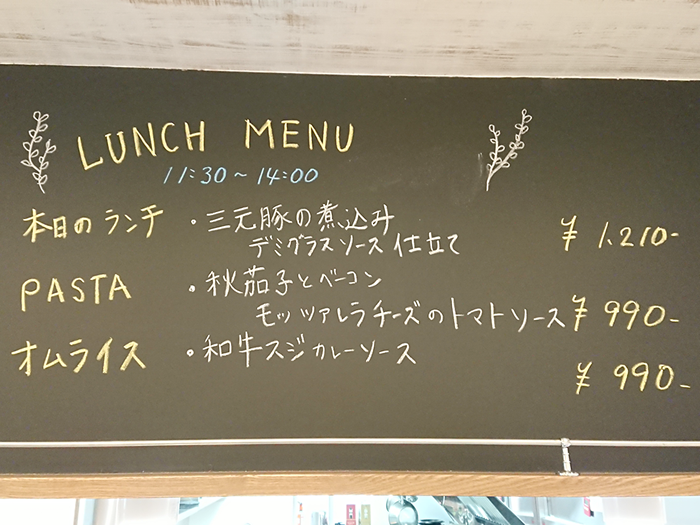 LUNCH MENU
11:30～14:00
本日のランチ ・三元豚の煮込み
デミグラスソース仕立て ¥1,210-
PASTA ・秋茄子とベーコン
モッツァレラチーズのトマトソース ¥990-
オムライス ・和牛スジカレーソース
¥990-